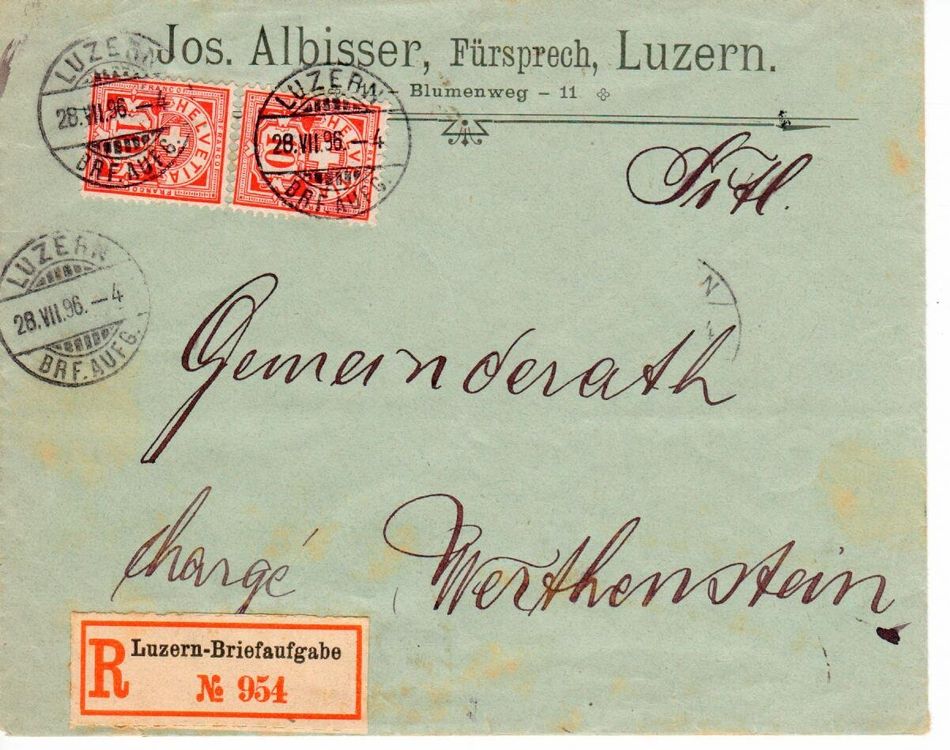 Jos. Albisser, Fürsprech, Luzern.
11 - Blumenweg - 11
LUZERN
28.VII.96.-4
BRF.AUFG.
FRANCO
HELVETIA
10
FRANCO
LUZERN
28.VII.96.-4
BRF.AUFG.
HELVETIA
10
Titl.
LUZERN
28.VII.96.-4
BRF.AUFG.
N
Gemeinderath
chargé
Werthenstein
R
Luzern-Briefaufgabe
№ 954